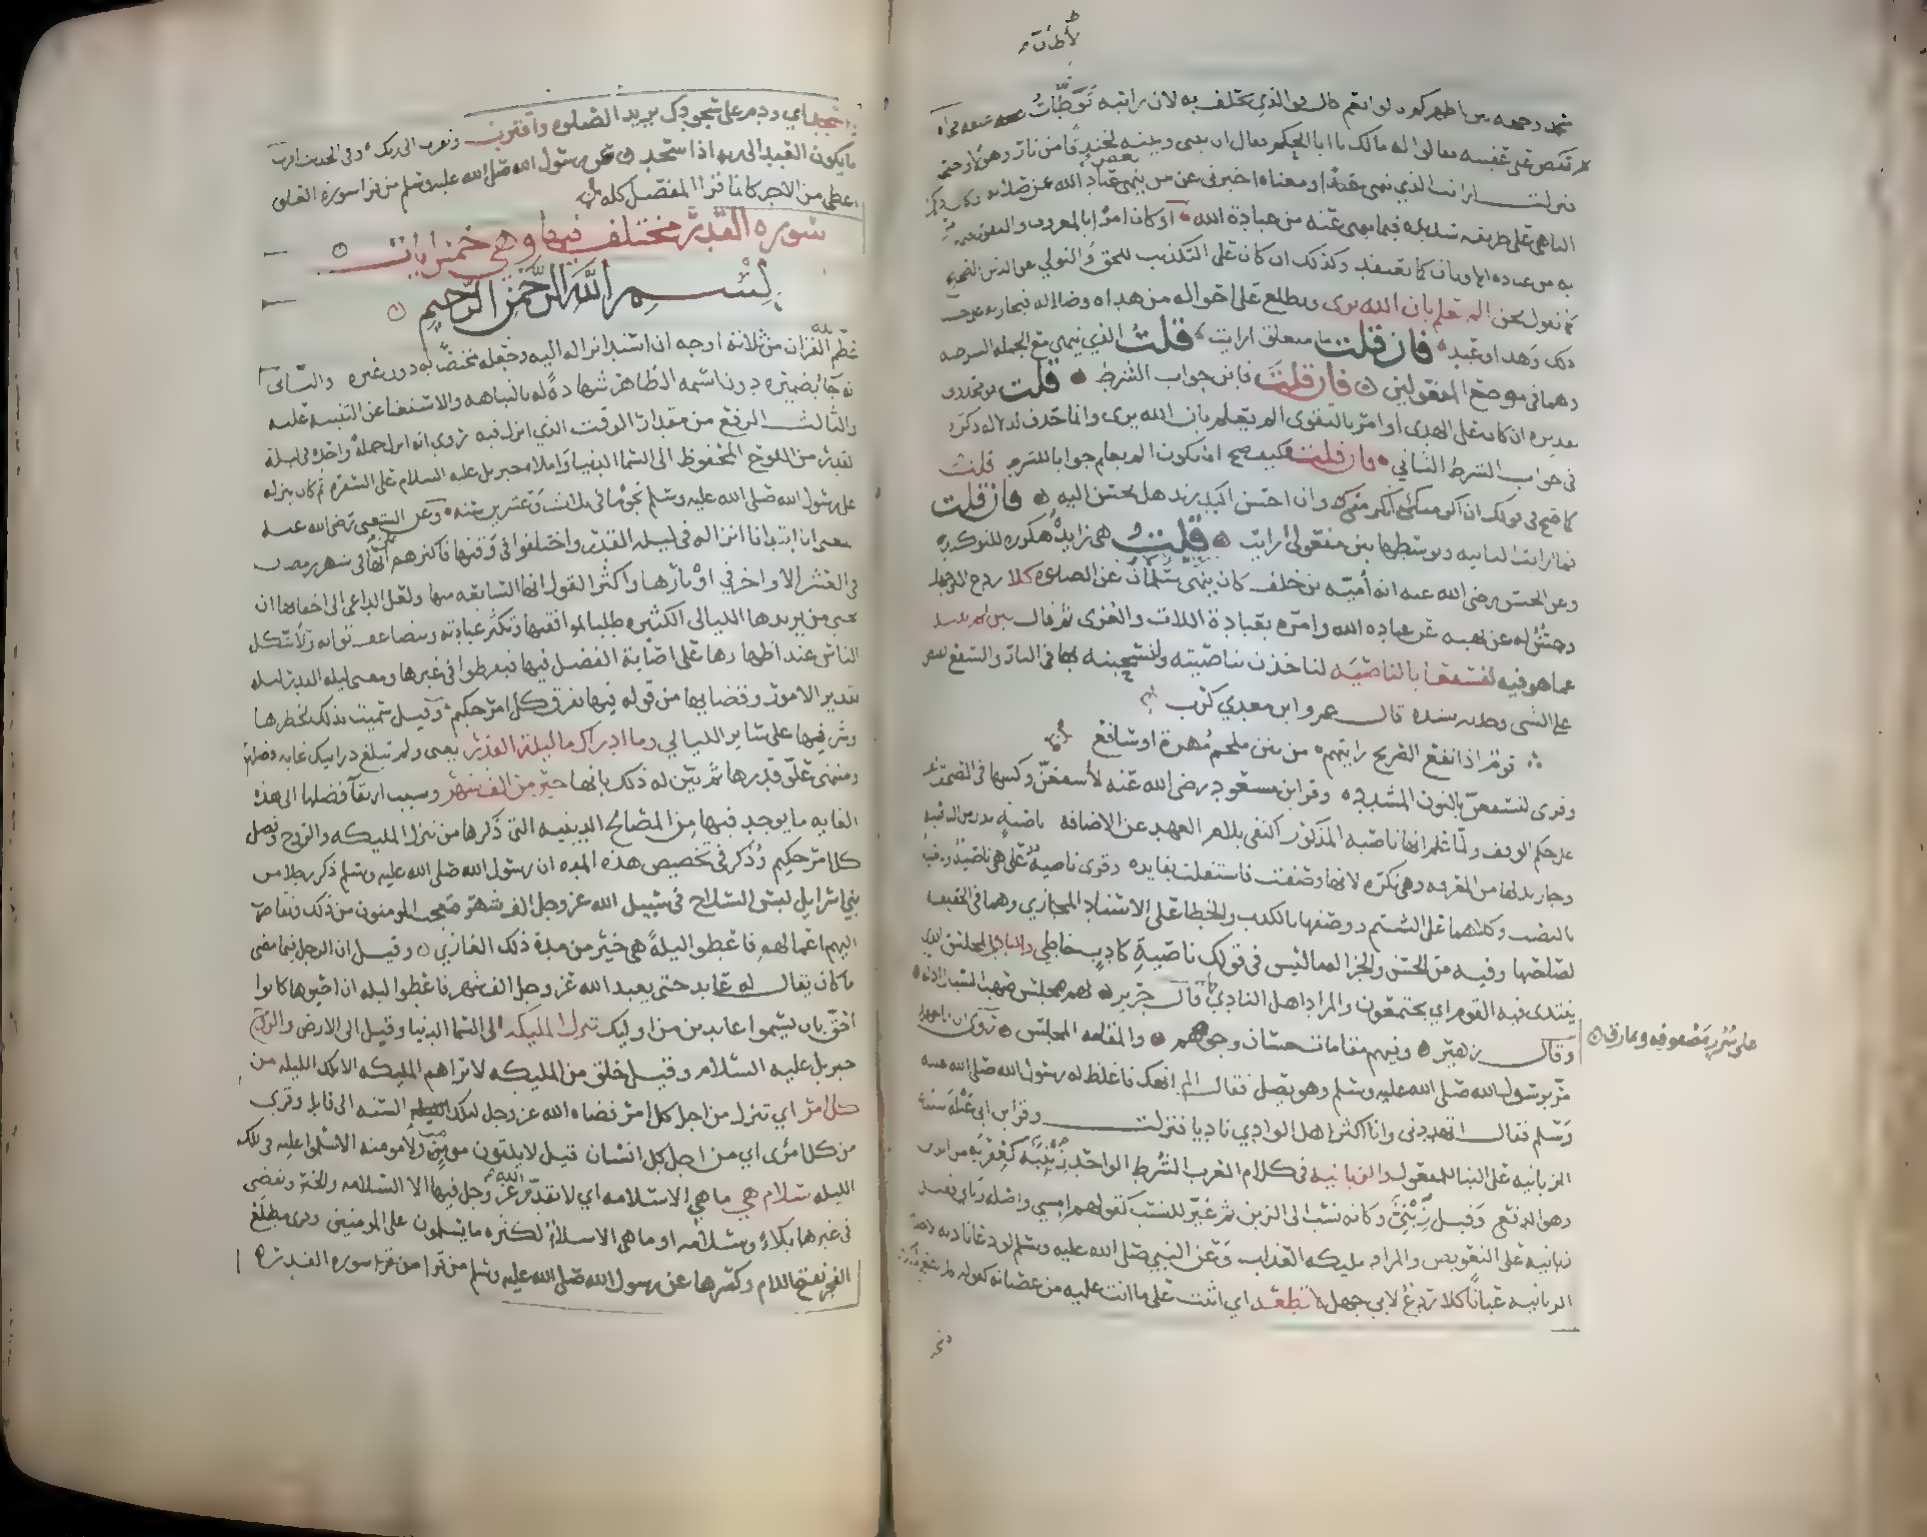 محمد وجهه بين اظهركم قالوا نعم قال فوالذي يحلف به لان رايته توطأت عنقه فجاه
ثم نكص على عقبيه فقالوا له مالك يا ابا الحكم فقال ان بيني وبينه لخندقا من نار وهولا واجنحة
فنزلت ارايت الذي ينهى ومعناه اخبرني عن من ينهى بعض عباد الله عن صلاته ان كان ذلك
الناهي على طريقه سديده فيما ينهى عنه من عبادة الله او كان امرا بالمعروف والتقوى فيما يامر
به من عبادة الاوثان كما يعتقد وكذلك ان كان على التكذيب للحق والتولي عن الدين الصحيح
كما نقول نحن الم يعلم بان الله يرى ويطلع على احواله من هداه وضلاله فيجازيه على حسب
ذلك وهذا وعيد فان قلت ما متعلق ارايت قلت الذي ينهى مع الجملة الشرطية
وهما في موضع المفعولين فان قلت فاين جواب الشرط قلت هو محذوف
تقديره ان كان على الهدى او امر بالتقوى الم يعلم بان الله يرى وانما حذف لدلالة ذكره
في جواب الشرط الثاني فان قلت فكيف صح ان يكون الم يعلم جوابا للشرط قلت
كما صح في قولك ان اكرمتك اتكرمني وان احسن اليك زيد هل تحسن اليه فان قلت
فما ارايت الثانية وتوسطها بين مفعولي ارايت قلت هي زايدة مكررة للتوكيد
وعن الحسن رضي الله عنه انه أمية بن خلف كان ينهى سلمان عن الصلوة كلا ردع لابي جهل
وخسؤ له عن نهيه عن عبادة الله وامره بعبادة اللات والعزى ثم قال لين لم ينته
عما هو فيه لنسفعا بالناصية لناخذن بناصيته ولنسحبنه بها في النار والسفع القبض
على الشى وجذبه بشده قال عمرو ابن معدي كرب
قوم اذا نقع الصريخ رايتهم من بين ملجم مهرة او سافع
وقرى لنسفعن بالنون المشددة وقرا ابن مسعود رضى الله عنه لأسفعن وكتبها في المصحف
على حكم الوقف ولما علم انها ناصية المذكور اكتفى بلام العهد عن الاضافة ناصية بدل من الناصية
وجاز بدلها من المعرفه وهي نكره لانها وصفت فاستقلت بفايده وقرى ناصية على هي ناصية وناصية
بالنصب وكلاهما على الشتم ووصفها بالكذب والخطا على الاسناد المجازي وهما في الحقيقة
لصاحبها وفيه من الحسن والجزالة ما ليس في قولك ناصية كاذب خاطي والنادي المجلس الذي
ينتدى فيه القوم اي يجتمعون والمراد اهل النادي كما قال جرير لهم مجلس صهب السبال اذلة
وقال زهير وفيهم مقامات حسان وجوههم والمقامة المجلس روى ان ابا جهل
على سرر مصفوفة ونمارق
مر برسول الله صلى الله عليه وسلم وهو يصلي فقال الم انهك فاغلظ له رسول الله صلى الله عليه
وسلم فقال اتهددنى وانا اكثر اهل الوادي ناديا فنزلت وقرا ابن ابي عبلة سندع
الزبانيه على البنا للمفعول والزبانية في كلام العرب الشرط الواحد زبنية كعفرية من الزبن
وهو الدفع وقيل زبني وكانه نسب الى الزبن ثم غير للنسب كقولهم امسي واصله زباني فقيل
زبانية على التعويض والمراد مليكه العذاب وعن النبي صلى الله عليه وسلم لو دعا ناديه لاخذته
الزبانيه عيانا كلا ردع لابي جهل لا تطعه اي اثبت على ما انت عليه من عصيانه كقوله فلا تطع المكذبين
واسجد اي ودم على سجودك يريد الصلوة واقترب وتقرب الى ربك وفي الحديث اقرب
ما يكون العبد الى ربه اذا سجد وعن رسول الله صلى الله عليه وسلم من قرا سورة العلق
اعطي من الاجر كانما قرا المفصل كله
سورة القدر مختلف فيها وهي خمس ايات
بسم الله الرحمن الرحيم
عظم القران من ثلاثة اوجه ان اسند انزاله اليه وجعله مختصا به دون غيره والثاني
انه جآ بضميره دون اسمه الظاهر شهادة له بالنباهه والاستغنا عن التنبيه عليه
والثالث الرفع من مقدار الوقت الذي انزل فيه روي انه انزل جملة واحدة في ليلة
القدر من اللوح المحفوظ الى السما الدنيا واملاه جبريل عليه السلام على السفرة ثم كان ينزله
على رسول الله صلى الله عليه وسلم نجوما في ثلاث وعشرين سنه وعن الشعبي رضى الله عنه
معنى انا ابتدانا انزاله في ليلة القدر واختلفوا في وقتها فاكثرهم انها في شهر رمضان
في العشر الاواخر في اوتارها واكثر القول انها السابعه منها ولعل الداعي الى اخفايها ان
يحيى من يريدها الليالي الكثيره طلبا لموافقتها وتكثر عبادته ويتضاعف ثوابه ولا يتكل
الناس عند اظهارها على اصابة الفضل فيها فيفرطوا في غيرها ومعنى ليلة القدر ليلة
تقدير الامور وقضاييها من قوله فيها يفرق كل امر حكيم وقيل سميت بذلك لخطرها
وشرفها على ساير الليالي وما ادراك ما ليلة القدر يعني ولم تبلغ درايتك غاية فضلها
ومنتهى علو قدرها ثم بين له ذلك بانها خير من الف شهر وسبب ارتقآ فضلها الى هذه
الغايه ما يوجد فيها من المصالح الدينيه التي ذكرها من تنزل المليكه والروح وفصل
كل امر حكيم وذكر في تخصيص هذه المدة ان رسول الله صلى الله عليه وسلم ذكر رجلا من
بني اسرايل لبس السلاح في سبيل الله عز وجل الف شهر فعجب المومنون من ذلك وتقاصرت
اليهم اعمالهم فاعطوا ليلة هى خير من مدة ذلك الغازي وقيل ان الرجل فيما مضى
ما كان يقال له عابد حتى يعبد الله عز وجل الف شهر فاعطوا ليلة ان احيوها كانوا
احق بان يسموا عابدين من اوليك تنزل المليكه الى السما الدنيا وقيل الى الارض والروح
جبريل عليه السلام وقيل خلق من المليكه لا تراهم المليكه الا تلك الليله من
كل امر اي تنزل من اجل كل امر قضاه الله عز وجل لتلك السنه الى قابل وقرى
من كل امرئ اي من اجل كل انسان قيل لا يلقون مومنا ولا مومنه الا سلموا عليه في تلك
الليله سلام هي ما هي الا سلامه اي لا يقدر الله عز وجل فيها الا السلامه والخير ويقضي
في غيرها بلاء وسلامة او ما هى الا سلام لكثرة ما يسلمون على المومنين وقرى مطلع
الفجر بفتح اللام وكسرها عن رسول الله صلى الله عليه وسلم من قرا سورة القدر